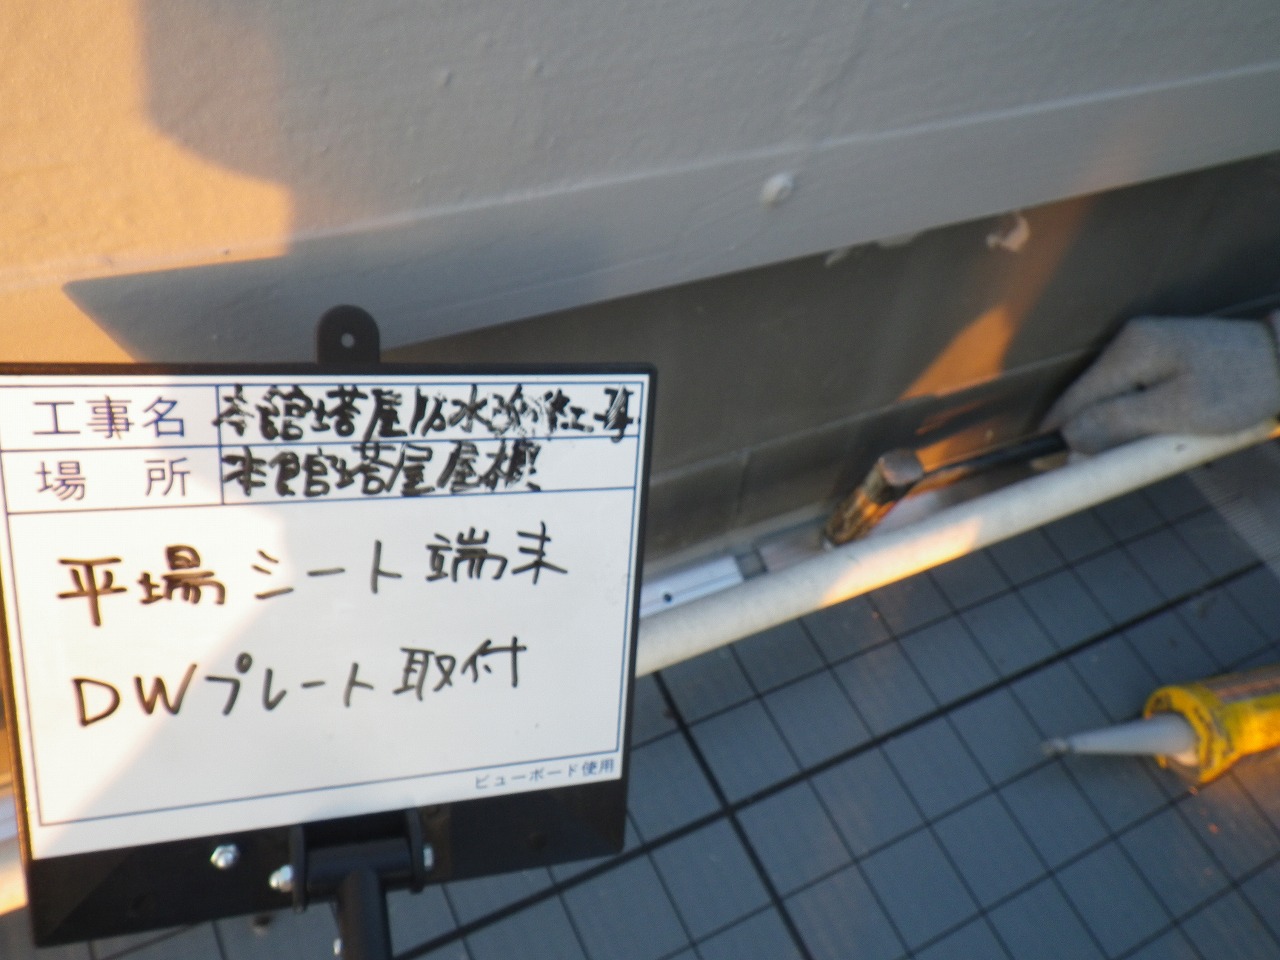 工事名 本館塔屋防水改修工事
場所 本館塔屋屋根
平場シート端末
DWプレート取付
ビューボード使用